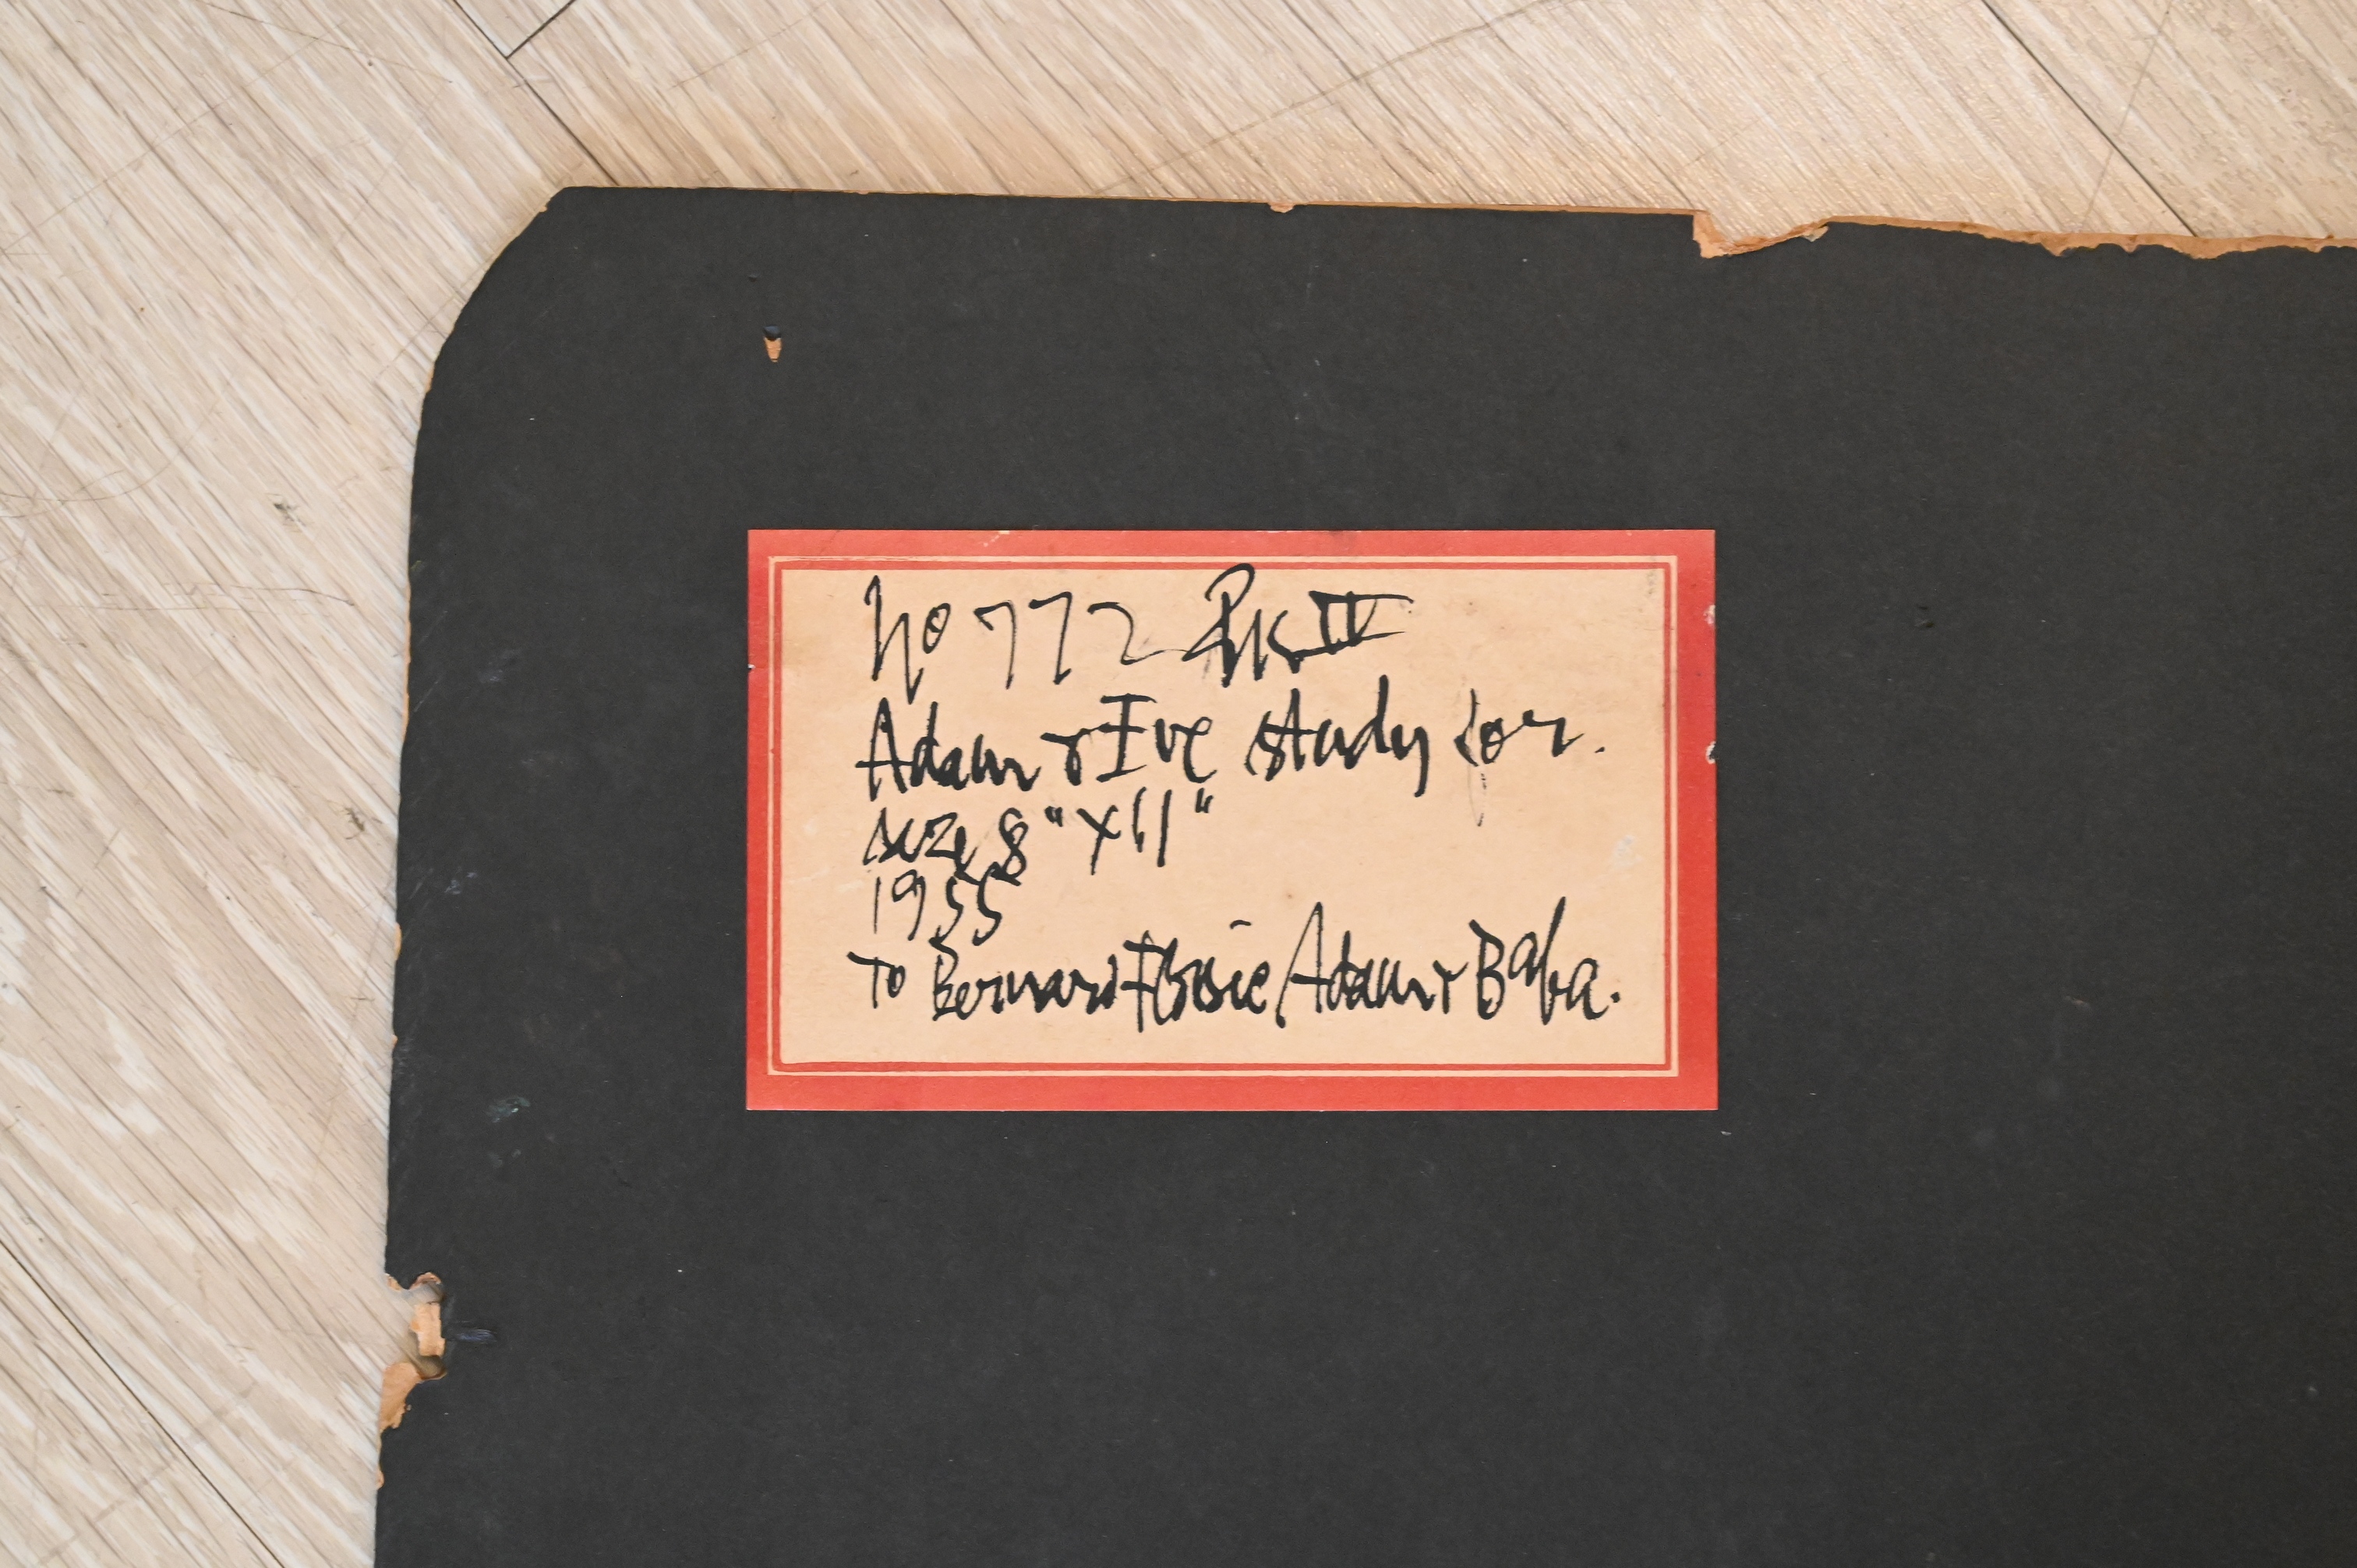 No 772 BK IV
Adam & Eve study for.
size 8" x 11"
1955
To Bernard Elsie Adam & Baba.